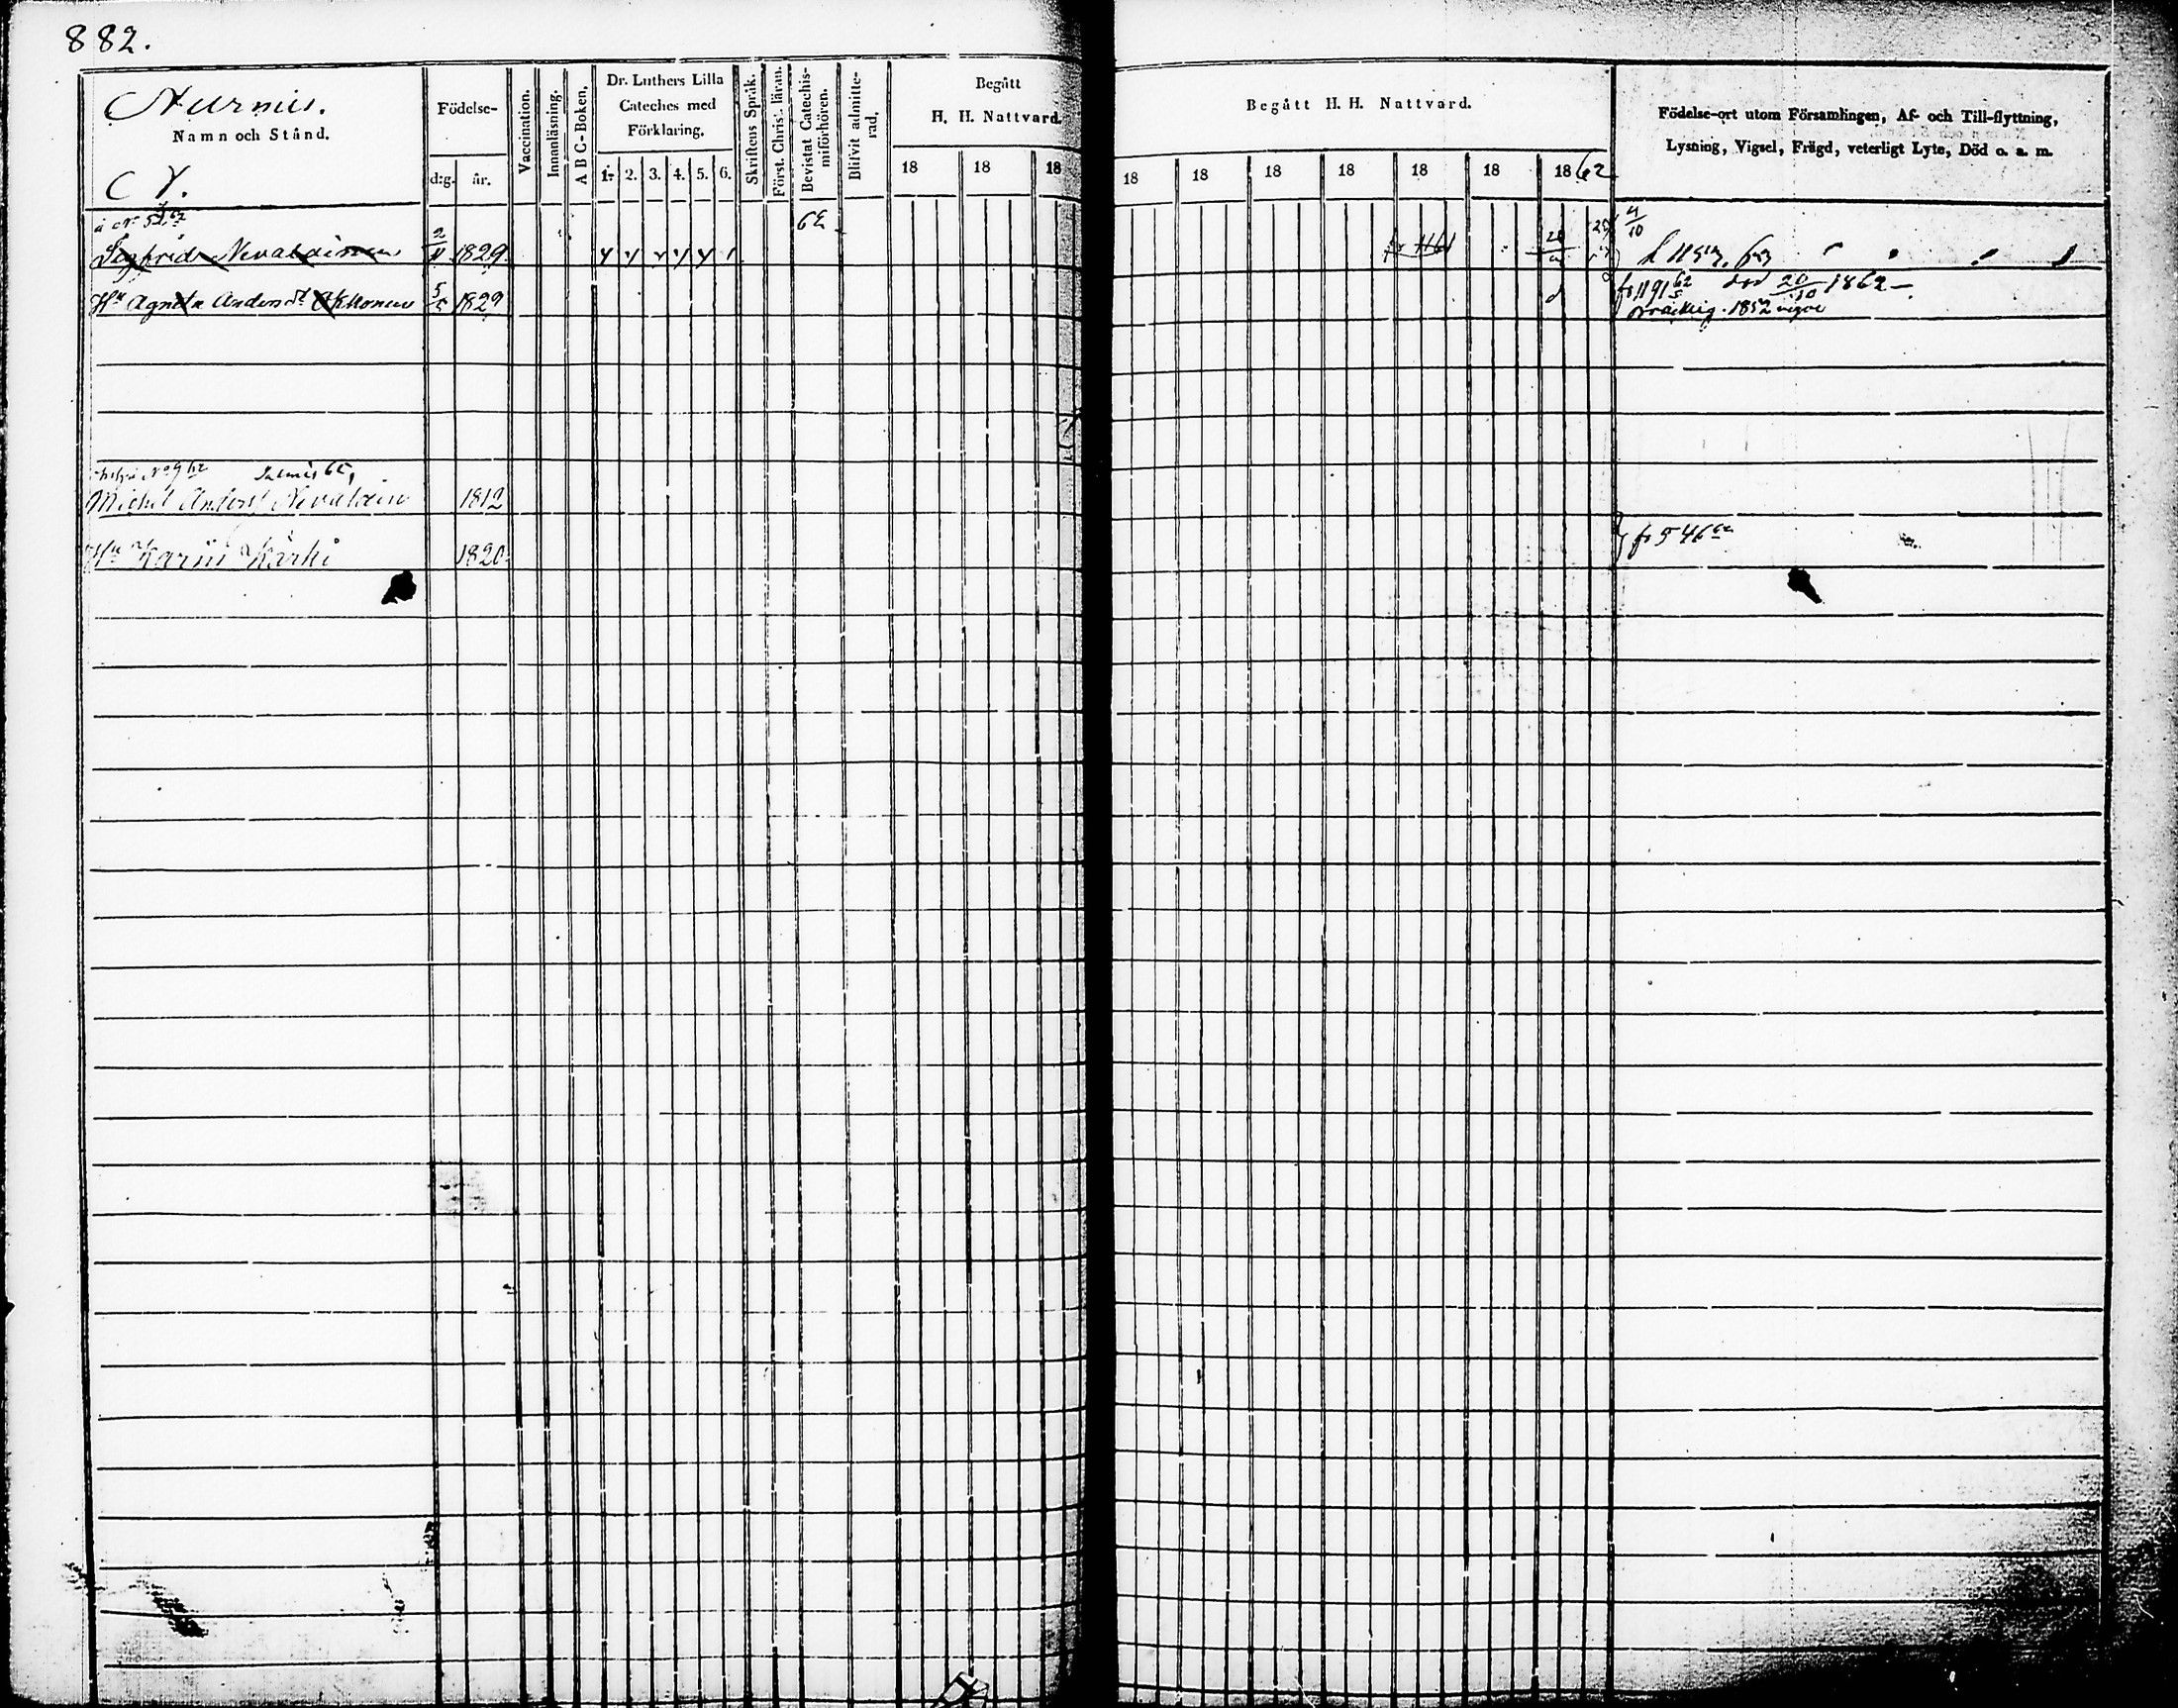 882.
Nurmis.
Namn och Stånd.
Födelse-
d:g. år.
Vaccination.
Innanläsning.
A B C-Boken.
Dr. Luthers Lilla
Cateches med
Förklaring.
1. 2. 3. 4. 5. 6.
Skriftens Språk.
Först. Christ. läran.
Bevistat Catechis-
miförhören.
Blifvit admitte-
rad.
Begått
H. H. Nattvard.
18 18 18
Begått H. H. Nattvard.
18 18 18 18 18 18 1862
Födelse-ort utom Församlingen, Af- och Till-flyttning,
Lysning, Vigsel, Frägd, veterligt Lyte, Död o. a. m.
Sigfrid Nevalainen 2/11 1829
Hu Agneta Andersdt 5/5 1829
fr 1191 62 död 20/10 1862
Michel Anders Nevalain 1812
Hu Karin Kärki 1820 fr 546